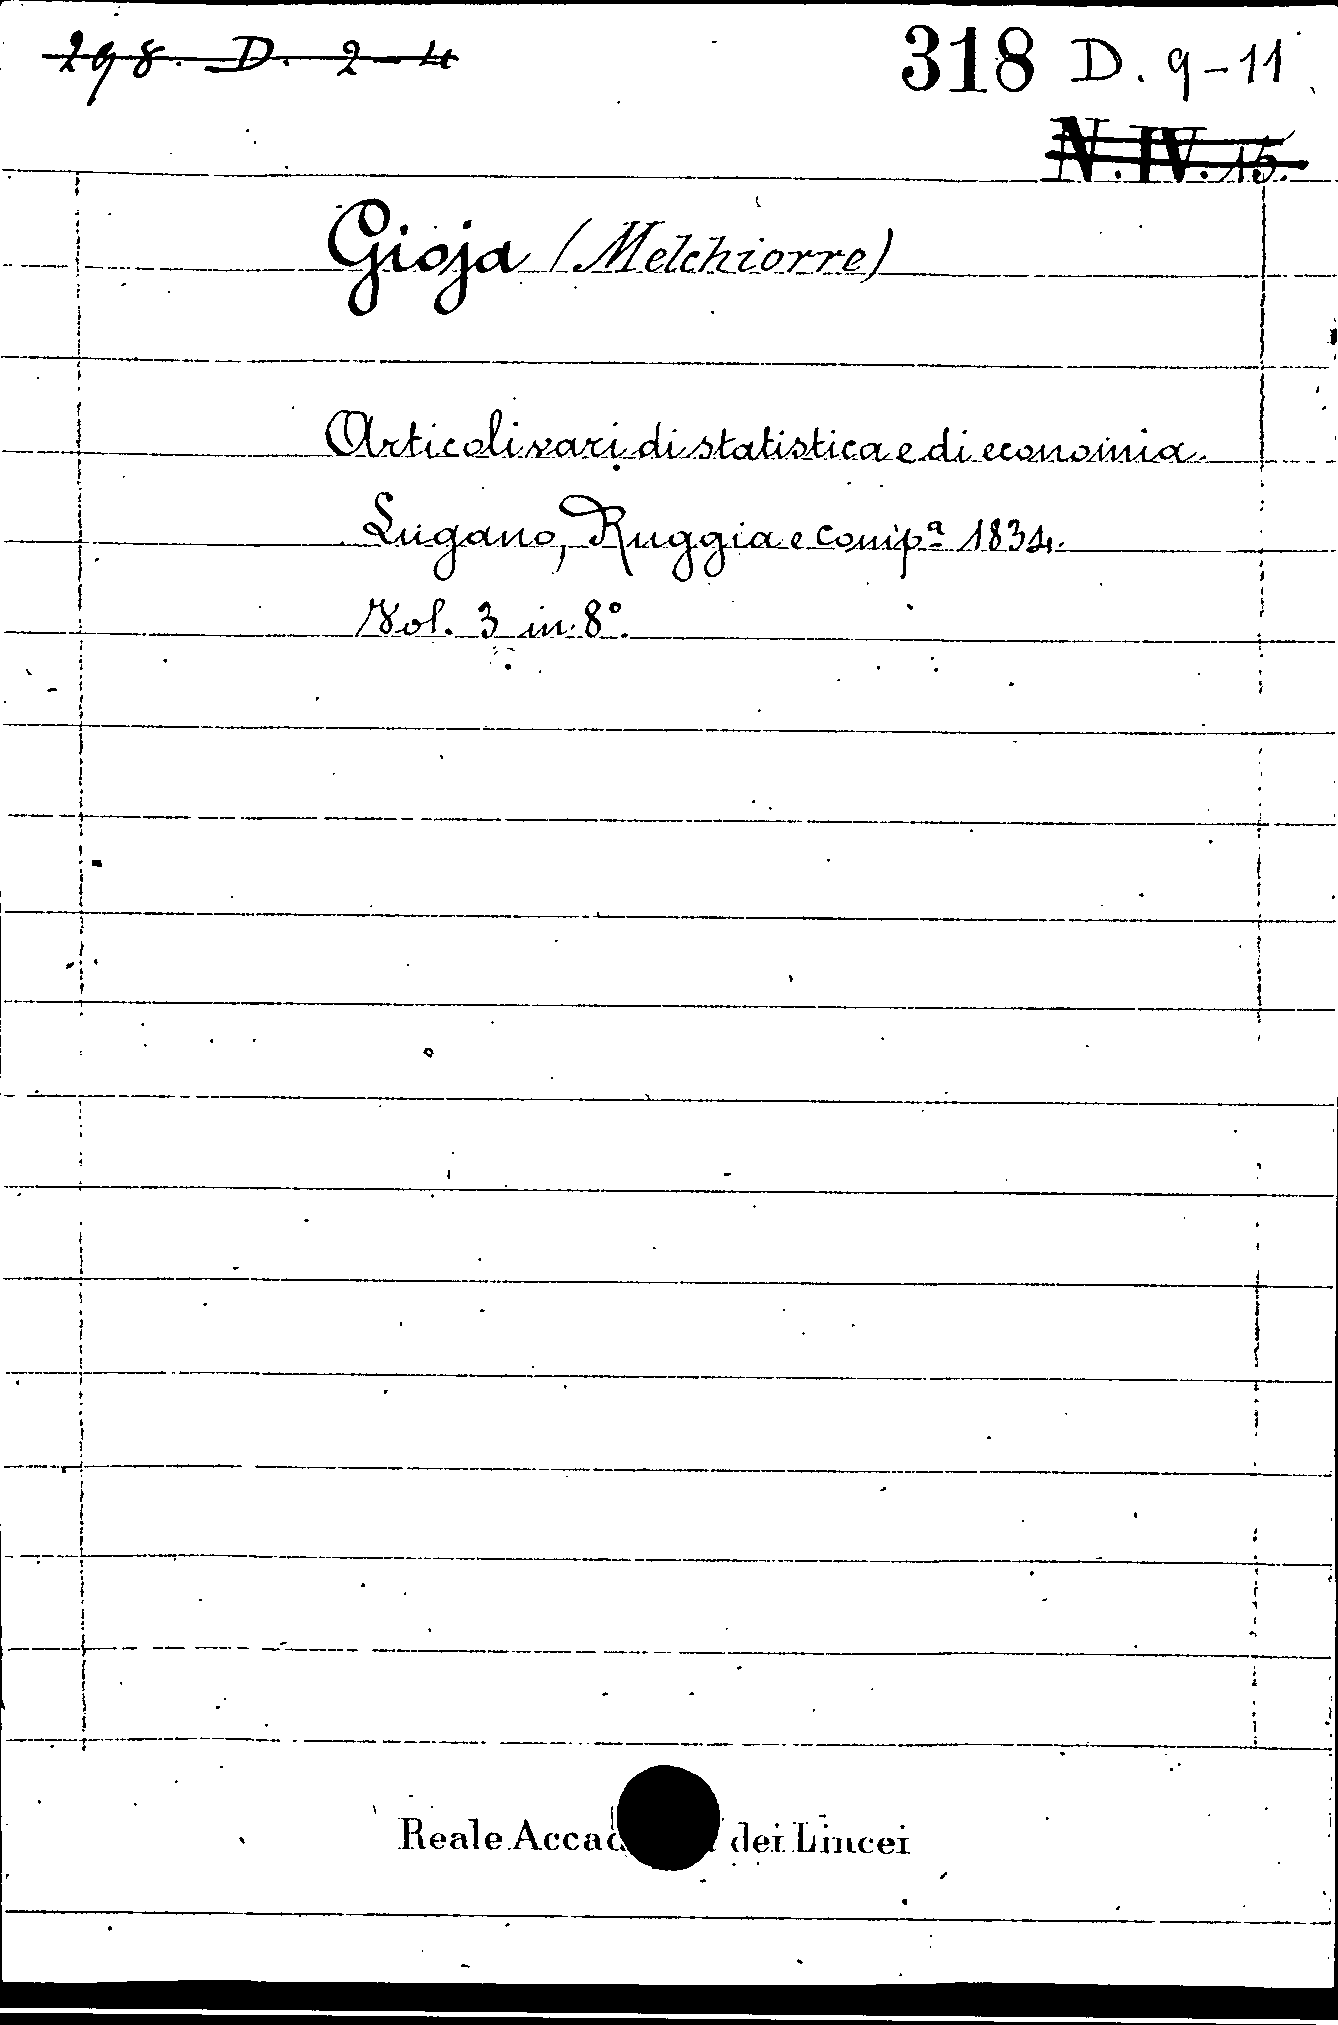 298. D. 2-4
318 D. 9-11
N. IV. 15.
Gioja (Melchiorre)
Articoli vari di statistica e di economia.
Lugano, Ruggia e Compª 1834.
Vol. 3 in 8°.
Reale Accad dei Lincei